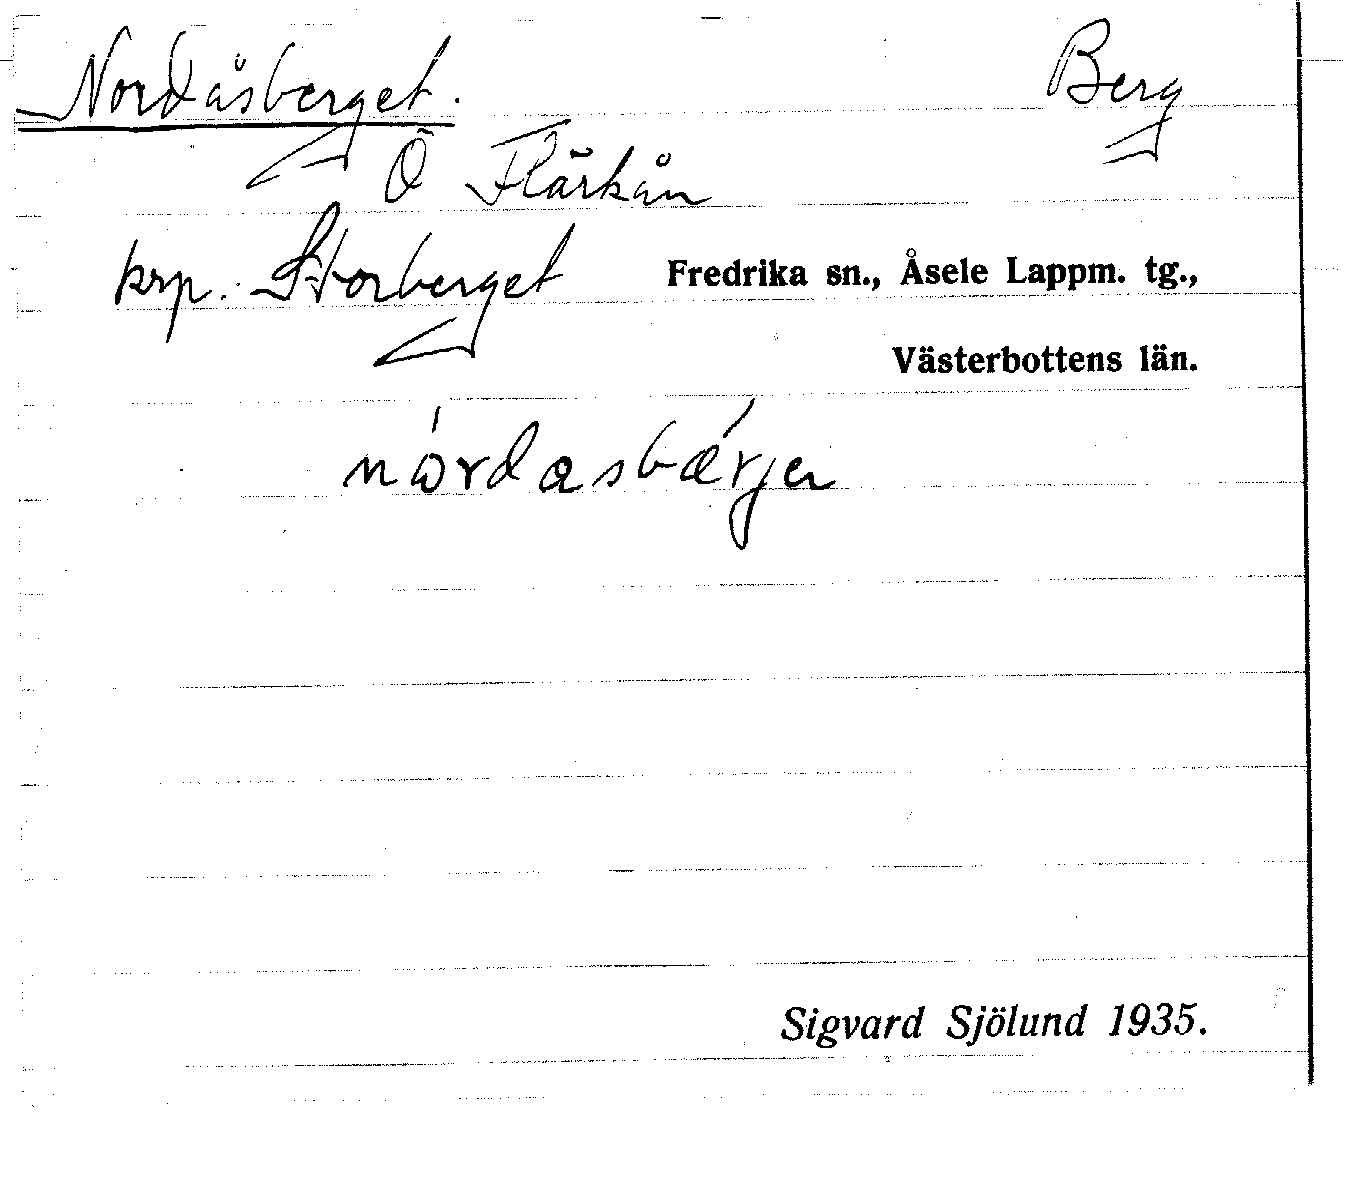 Nordåsberget. Berg
Ö Flärkån
krp. Storberget Fredrika sn., Åsele Lappm. tg.,
Västerbottens län.
nórdasbǽrjen
Sigvard Sjölund 1935.